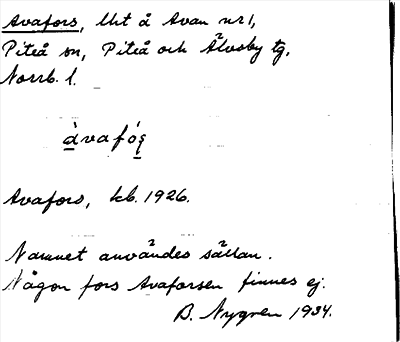 Avafors, lht å Avan nr 1,
Piteå sn, Piteå och Älvsby tg.
Norrb. l.
àvafó
Avafors, kb. 1926.
Namnet användes sällan.
Någon fors Avaforsen finnes ej.
B. Nygren 1934.